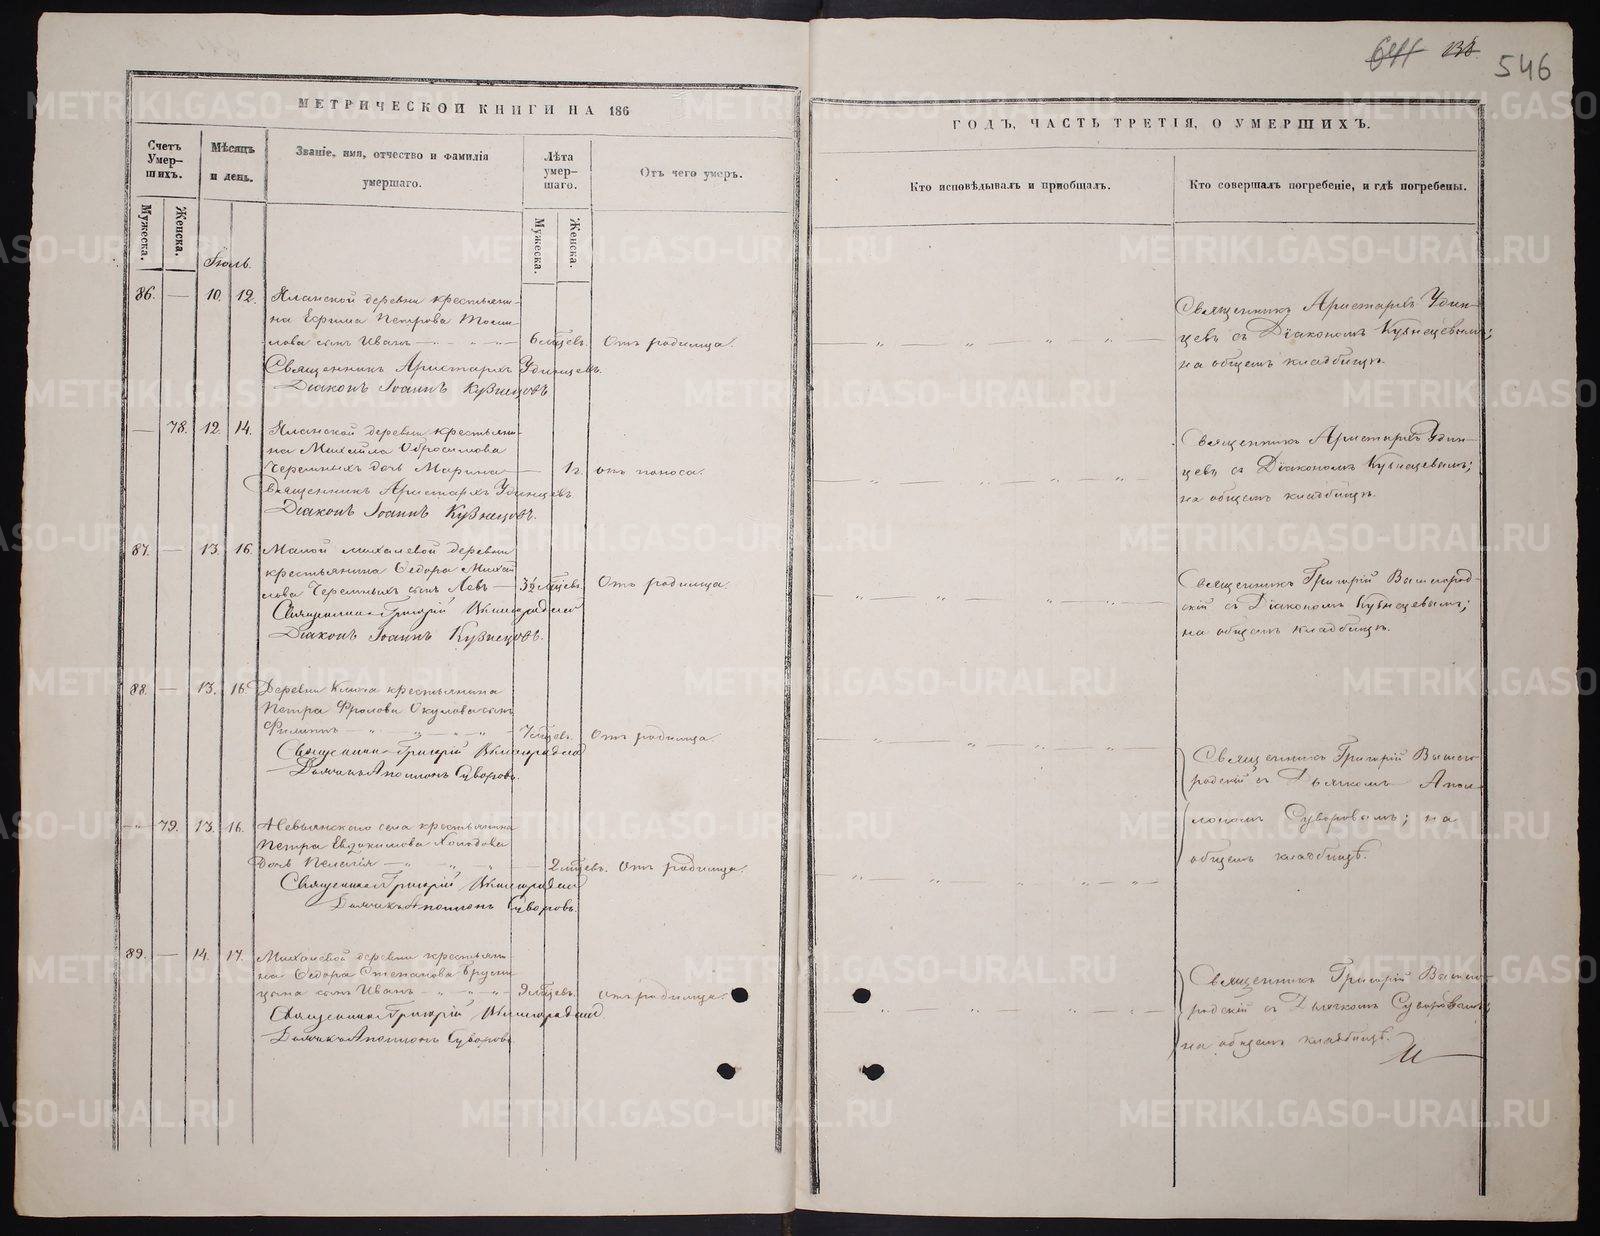 641 138
546
МЕТРИЧЕСКОЙ КНИГИ НА 186
ГОДЪ, ЧАСТЬ ТРЕТІЯ, О УМЕРШИХЪ.
Счетъ Умер-шихъ.
Мѣсяцъ и день.
Званіе, имя, отчество и фамилія умершаго.
Лѣта умер-шаго.
Отъ чего умеръ.
Кто исповѣдывалъ и пріобщалъ.
Кто совершалъ погребеніе, и гдѣ погребены.
Мужеска.
Женска.
Мужеска.
Женска.
Іюль.
86. — 10. 12. Яланской деревни крестьяни-
на Ефима Петрова
сынъ Иванъ — 6 мѣцевъ. Отъ родимца.
Священникъ Аристархъ Удинцевъ.
Діаконъ Іоаннъ Кузнецовъ
Священникъ Аристархъ Удин-
цевъ съ Діакономъ Кузнецовымъ;
на общемъ кладбищѣ.
— 78. 12. 14. Яланской деревни крестьяни-
на Михаила Обросимова
Черемныхъ дочь Марина — 1 г. отъ поноса.
Священникъ Аристархъ Удинцевъ
Діаконъ Іоаннъ Кузнецовъ.
Священникъ Аристархъ Удин-
цевъ съ Діакономъ Кузнецовымъ;
на общемъ кладбищѣ.
87. — 13. 16. Малой Михалевой деревни
крестьянина Ѳедора Михай
лова Черемныхъ сынъ Левъ — 3½ мѣцевъ. Отъ родимца
Священникъ Григорій
Діаконъ Іоаннъ Кузнецовъ.
Священникъ Григорій Вышегород-
скій съ Діакономъ Кузнецовымъ;
на общемъ кладбищѣ.
88. — 13. 16. Деревни Ключа крестьянина
Петра Фролова Окулова сынъ
Филиппъ — 7 мѣцевъ. Отъ родимца.
Священникъ Григорій
Дьячекъ Аполлонъ Суворовъ.
Священникъ Григорій Вышего
родскій съ Дьячкомъ Апол-
лономъ Суворовымъ; на
общемъ кладбищѣ.
— 79. 13. 16. Невьянскаго села крестьянина
Петра Евдокимова
Дочь Пелагія — 2 мѣцевъ. Отъ родимца.
Священникъ Григорій
Дьячекъ Аполлонъ Суворовъ.
89. — 14. 17. Михалевой деревни крестьяни
на Ѳедора Степанова Брусни
цына сынъ Иванъ — 9 мѣцевъ. Отъ родимца.
Священникъ Григорій
Дьячекъ Аполлонъ Суворовъ.
Священникъ Григорій Вышего-
родскій съ Дьячкомъ Суворовымъ;
на общемъ кладбищѣ.
METRIKI.GASO-URAL.RU